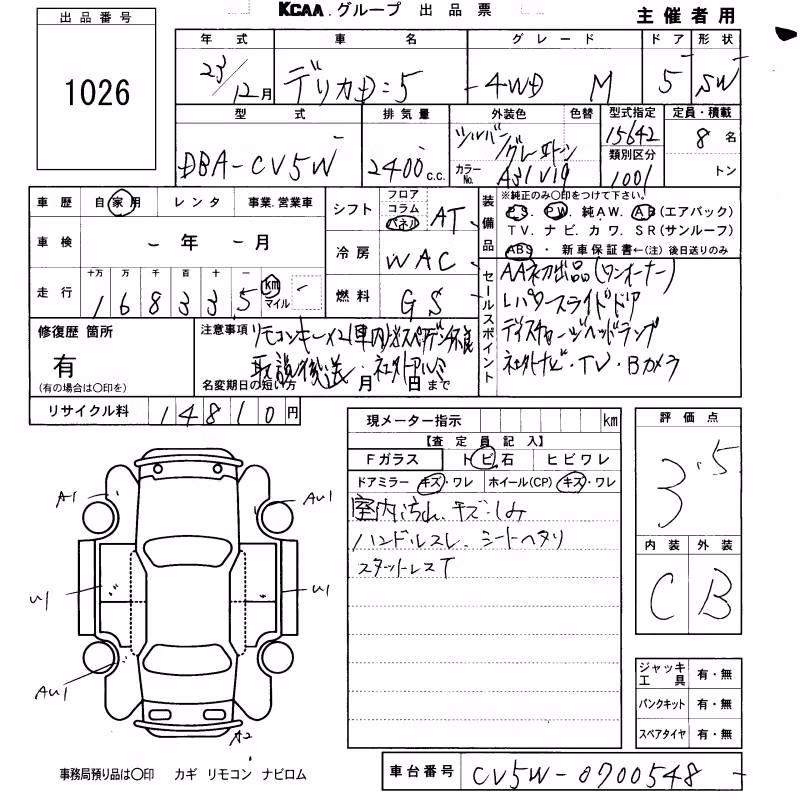 KCAA.グループ 出品票
主催者用
出品番号
1026
年式 車名 グレード ドア 形状
23/12月 デリカD:5 4WD M 5 SW
型式 排気量 外装色 色替 型式指定 定員・積載
DBA-CV5W 2400c.c. シルバー/グレーIIトーン 15642 8名
カラーNo. A31V19 類別区分 1001 トン
車歴 自家用 レンタ 事業.営業車
車検 -年 -月
走行 十万 万 千 百 十 一
168335 km マイル
シフト フロア コラム パネル AT
冷房 WAC
燃料 GS
装備品 ※純正のみ○印をつけて下さい。
PS. PW. 純AW. AB(エアバック)
TV. ナビ. カワ. SR(サンルーフ)
ABS・新車保証書←(注)後日送りのみ
セールスポイント
AA初出品(ワンオーナー)
Lパワースライドドア
ディスチャージヘッドランプ
社外ナビ・TV・Bカメラ
修復歴 箇所
有
(有の場合は○印を)
注意事項 リモコンキーX2
取説後送・社外アルミ
名変期日の短い方 月 日まで
リサイクル料 14810円
現メーター指示 km
【査定員記入】
Fガラス トビ石 ヒビワレ
ドアミラー キズ・ワレ ホイール(CP) キズ・ワレ
室内ヨゴレ、キズ・しみ
ハンドルスレ、シートヘタリ
スタットレスT
評価点
3.5
内装 外装
C B
ジャッキ工具 有・無
パンクキット 有・無
スペアタイヤ 有・無
A1 AU1
U1 U1
AU1
A2
事務局預り品は○印 カギ リモコン ナビロム
車台番号 CV5W-0700548